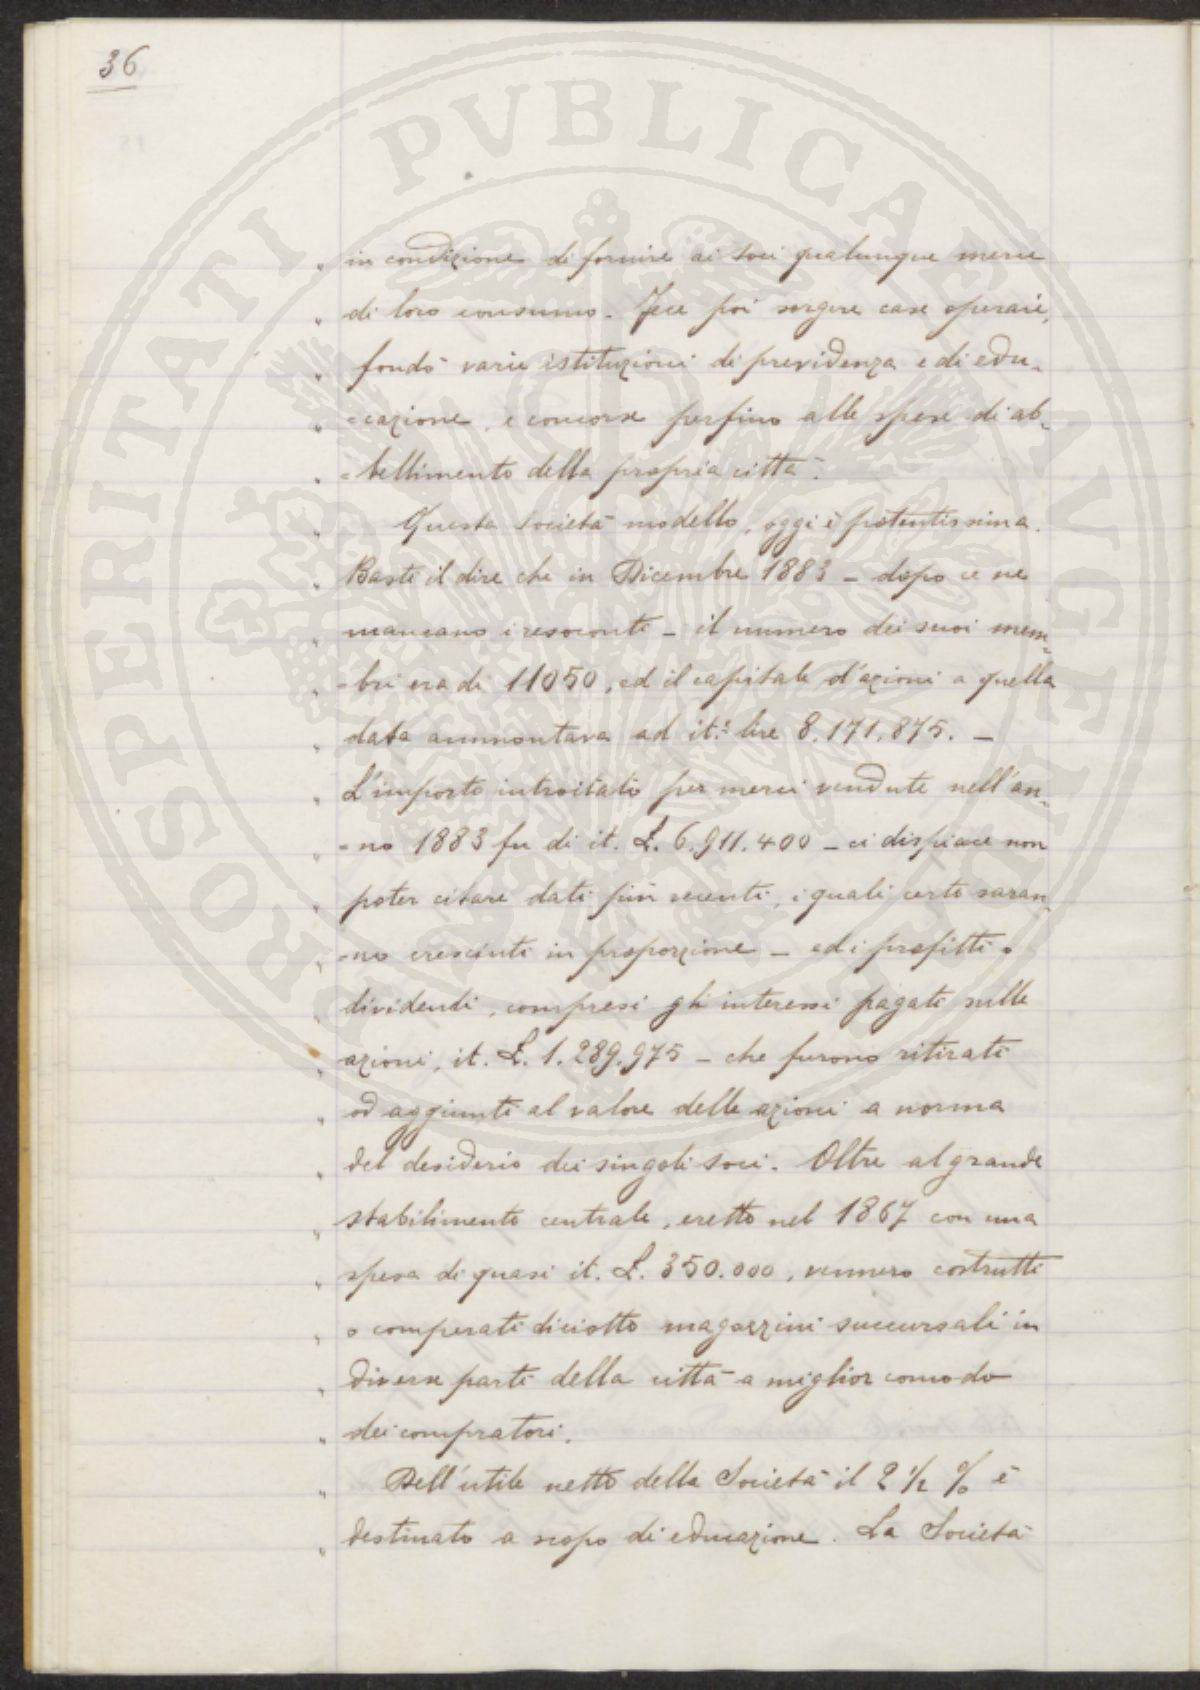 36
„ in condizione di fornire ai soci qualunque merce
„ di loro consumo. Fece poi sorgere case operaie,
„ fondò varie istituzioni di previdenza e di edu-
„ -cazione, e concorse perfino alle spese di ab-
„ -bellimento della propria città.
„ Questa Società modello, oggi è potentissima.
„ Basti il dire che in Dicembre 1883 - dopo ce ne
„ mancano i resoconti - il numero dei suoi mem-
„ -bri era di 11050, ed il capitale d'azioni a quella
„ data ammontava ad it.e lire 8,171,875. -
„ L'importo introitato per merci vendute nell'an-
„ -no 1883 fu di it. L. 6,911,400 - ci dispiace non
„ poter citare dati più recenti, i quali certo saran-
„ -no cresciuti in proporzione - ed i profitti o
„ dividendi, compresi gli interessi pagati sulle
„ azioni, it. L. 1.289.975 - che furono ritirati
„ od aggiunti al valore delle azioni a norma
„ del desiderio dei singoli soci. Oltre al grande
„ stabilimento centrale, eretto nel 1867 con una
„ spesa di quasi it. L. 350.000, vennero costrutti
„ o comperati diciotto magazzini succursali in
„ diverse parti della città a miglior comodo
„ dei compratori.
„ Dell'utile netto della Società il 2 1/2 % è
„ destinato a scopo di educazione. La Società
PROSPERITATI PVBLICAE AVGENDAE